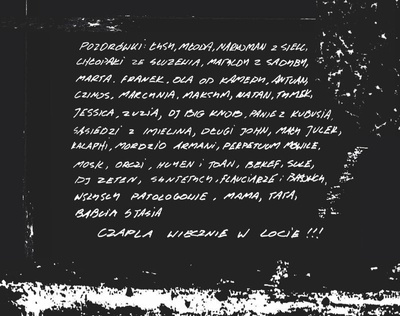 POZDRÓWKI: ŁYSY, MŁODA, NARKOMAN Z SIEKĄ,
CHŁOPAKI ZE SŁUŻENIA, MATYLDY Z SADYBY,
MARTA, FRANEK, OLA OD KAMERY, ANTUAN,
MARCYNIA, MAKSYM, NATAN, TYMEK,
JESSICA, ZUZIA, DJ BIG KNOB, PANIEZ KUBUSIA,
SĄSIEDZI Z IMIELINA, DŁUGI JOHN, MAŁY JULEK,
KALAPHI, MORDZIO ARMANI, PERPETUUM MOBILE,
MOSK, I TOAN, BEKEF,
DJ ZETEN, SYNTETYCY, FLAVCIARZE I
WSZYSCY PATOLOGOWIE, MAMA, TATA,
BABCIA STASIA
CZAPLA WIECZNIE W LOCIE !!!